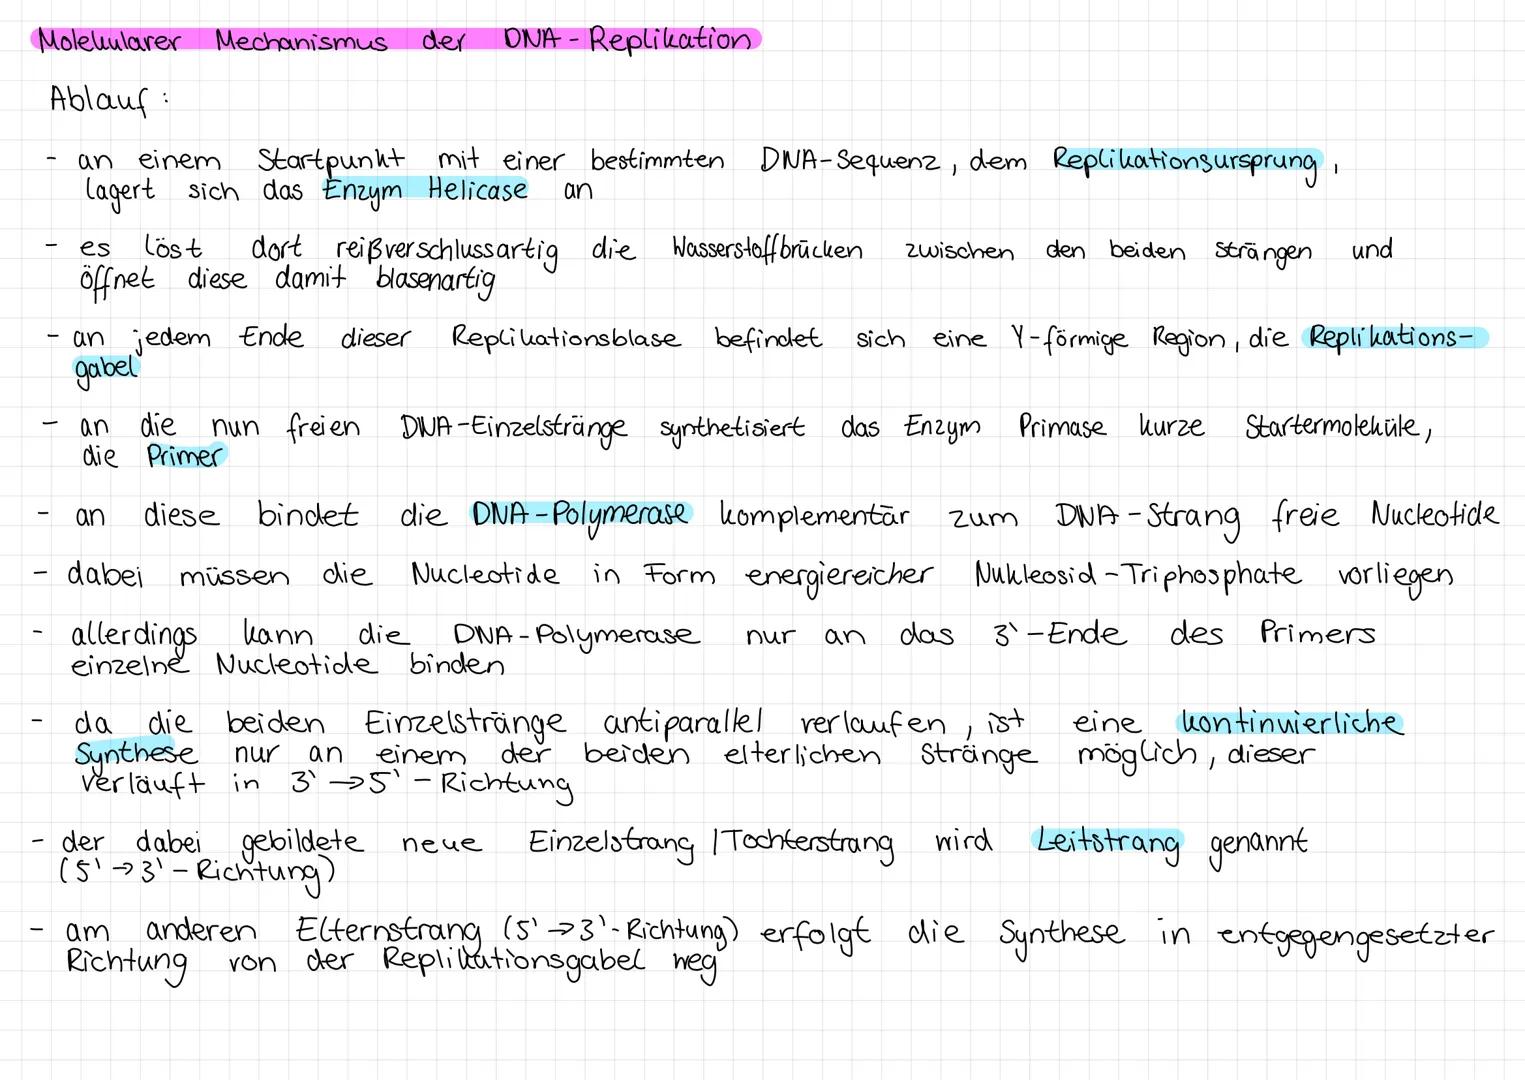 Molekularer Mechanismus der DNA-Replikation
Ablauf:
- an einem Startpunkt mit einer bestimmten DNA-Sequenz, dem Replikationsursprung,
lagert sich das Enzym Helicase an
- es löst dort reißverschlussartig die Wasserstoffbrücken zwischen den beiden Strängen und
öffnet diese damit blasenartig
- an jedem Ende dieser Replikationsblase befindet sich eine Y-förmige Region, die Replikations-
gabel
- an die nun freien DNA-Einzelstränge synthetisiert das Enzym Primase kurze Startermoleküle,
die Primer
- an diese bindet die DNA-Polymerase komplementär zum DNA-Strang freie Nucleotide
- dabei müssen die Nucleotide in Form energiereicher Nukleosid-Triphosphate vorliegen
- allerdings kann die DNA-Polymerase nur an das 3`-Ende des Primers
einzelne Nucleotide binden
- da die beiden Einzelstränge antiparallel verlaufen, ist eine kontinuierliche
Synthese nur an einem der beiden elterlichen Stränge möglich, dieser
verläuft in 3`→5`-Richtung
- der dabei gebildete neue Einzelstrang/Tochterstrang wird Leitstrang genannt
(5`→3`-Richtung)
- am anderen Elternstrang (5`→3`-Richtung) erfolgt die Synthese in entgegengesetzter
Richtung von der Replikationsgabel weg